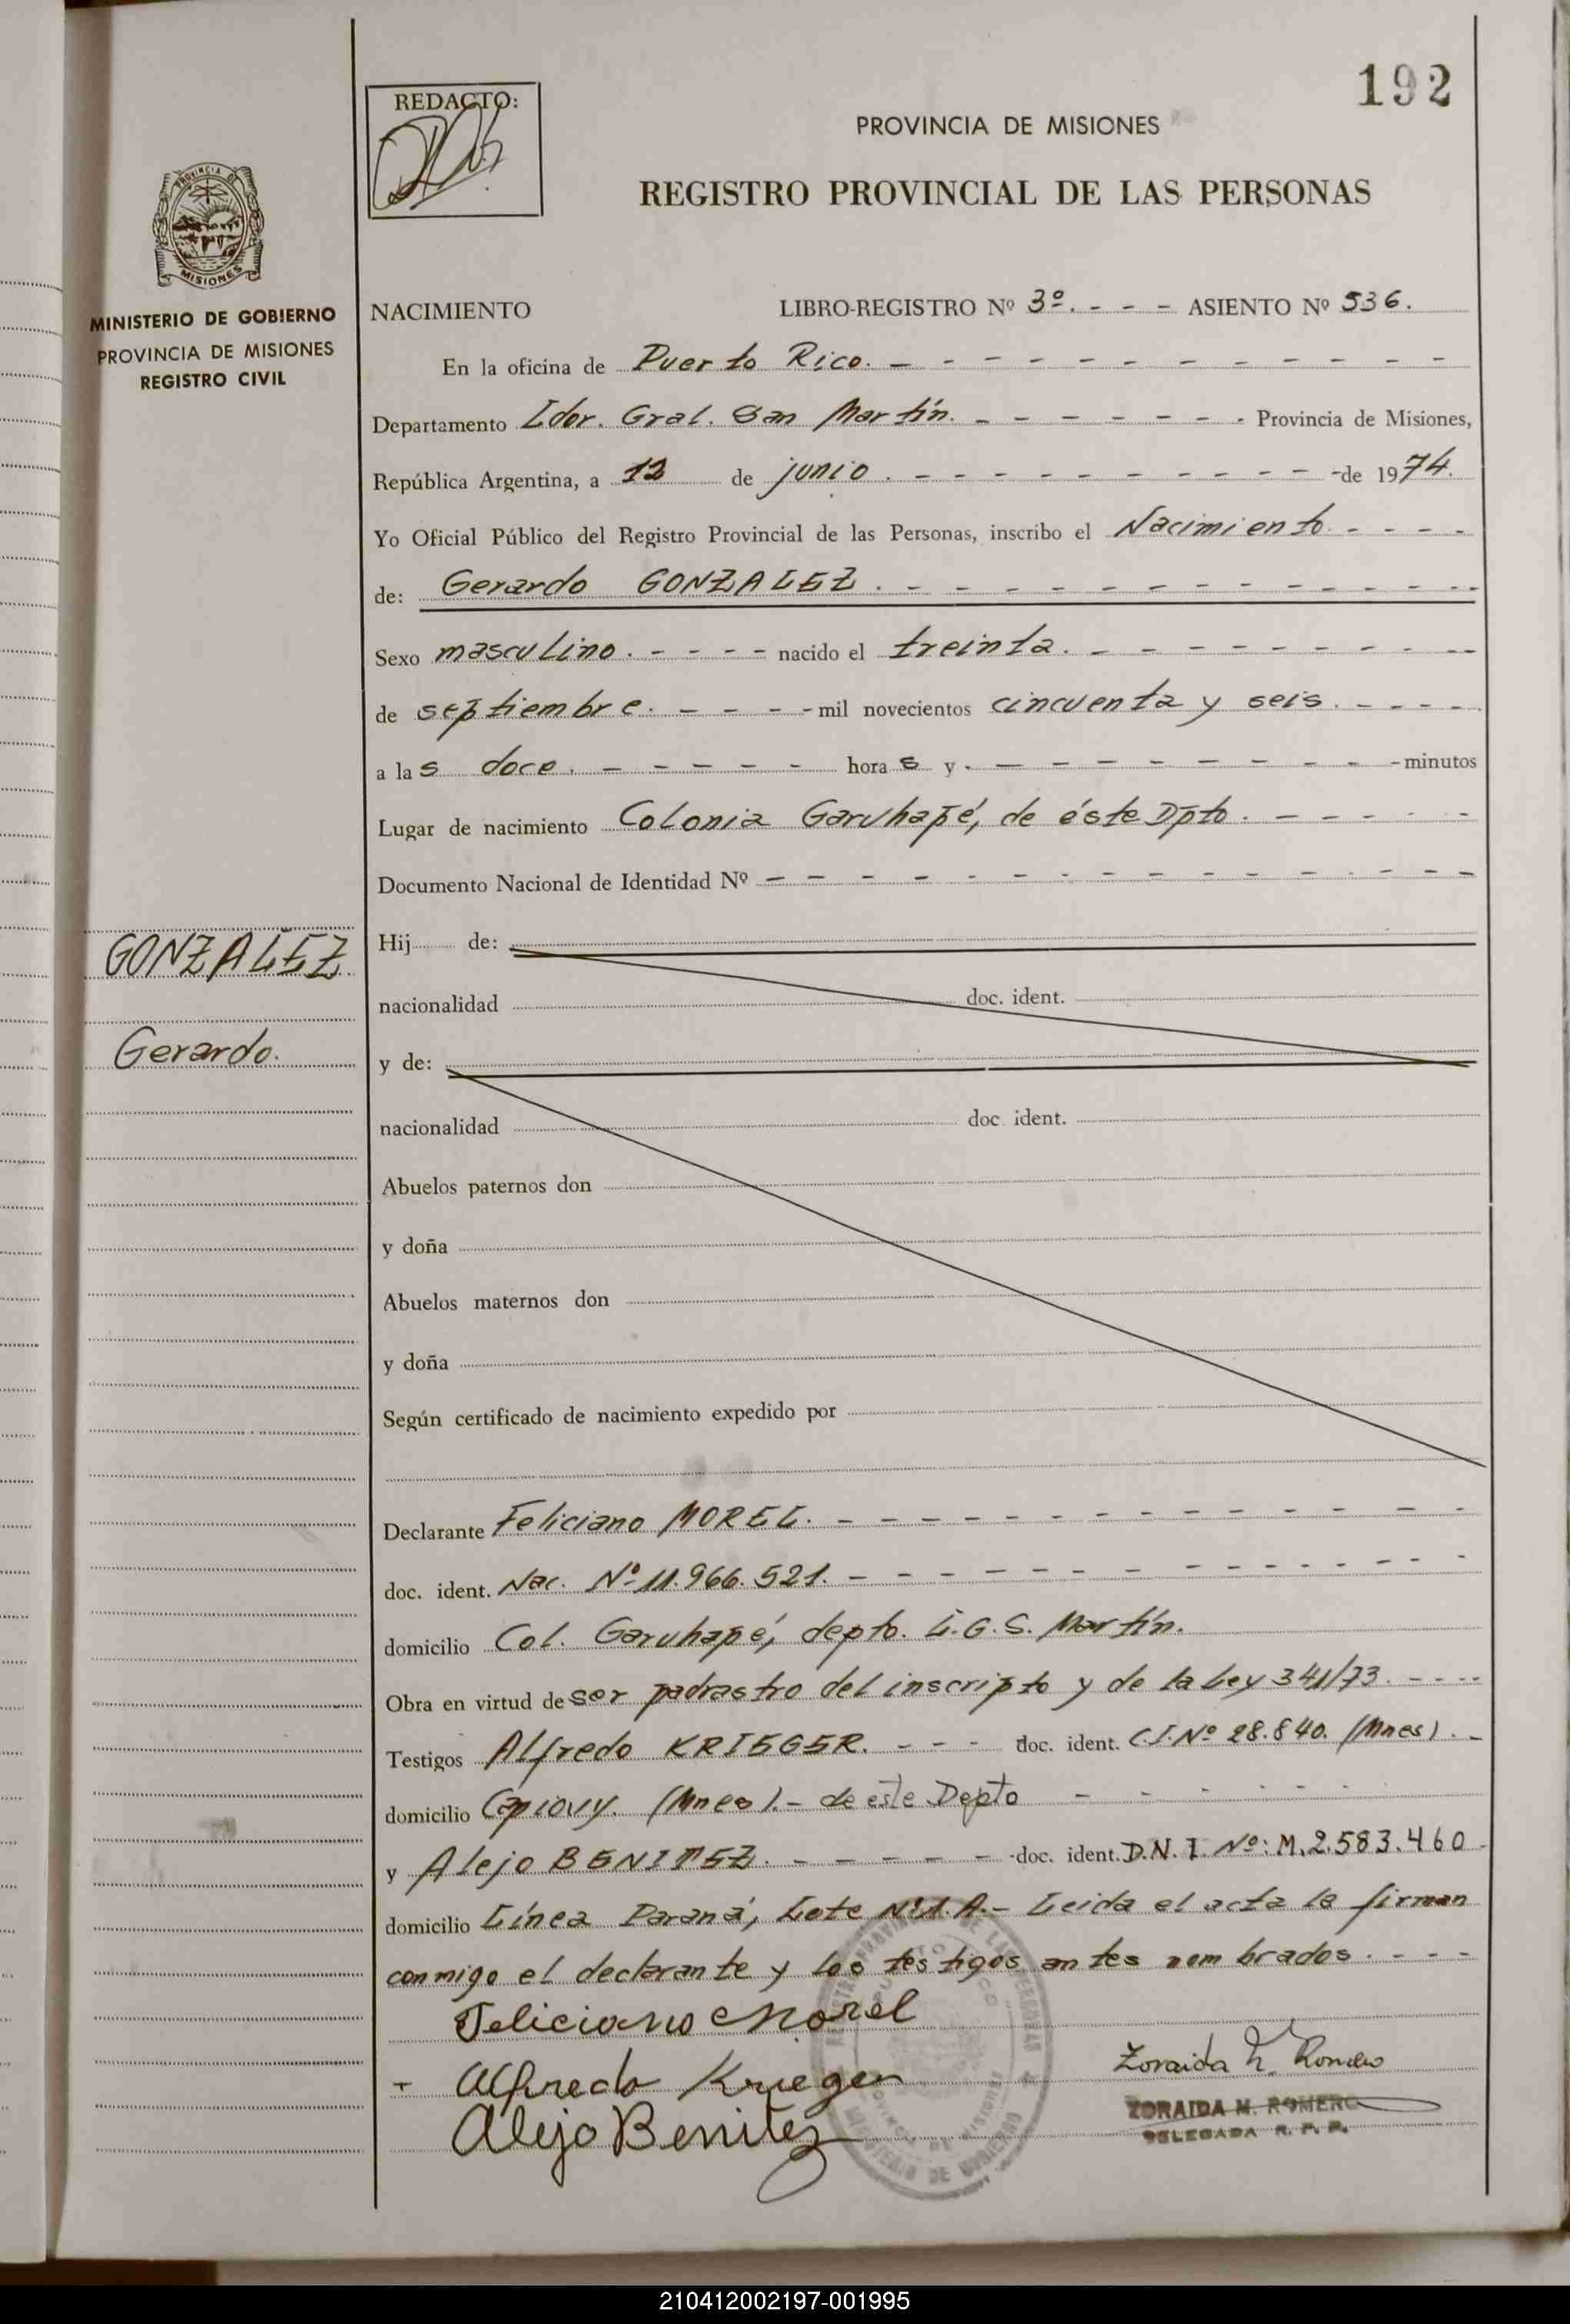 192
REDACTO:
PROVINCIA DE MISIONES
REGISTRO PROVINCIAL DE LAS PERSONAS
PROVINCIA DE
MISIONES
MINISTERIO DE GOBIERNO
PROVINCIA DE MISIONES
REGISTRO CIVIL
NACIMIENTO LIBRO-REGISTRO Nº 3º. - - - ASIENTO Nº 536.
En la oficina de Puerto Rico. - - - - - - - - - - - -
Departamento Ldor. Gral. San Martín. - - - - - - - Provincia de Misiones,
República Argentina, a 12 de junio. - - - - - - - - - - de 1974.
Yo Oficial Público del Registro Provincial de las Personas, inscribo el Nacimiento. - - - -
de: Gerardo GONZALEZ. - - - - - - - - - - - - -
Sexo masculino. - - - - nacido el treinta. - - - - - - - - - -
de septiembre. - - - - mil novecientos cincuenta y seis. - - - -
a las doce. - - - - - - horas y - - - - - - - - - - minutos
Lugar de nacimiento Colonia Garuhapé, de éste Dpto. - - - - - -
Documento Nacional de Identidad Nº - - - - - - - - - - - - - - -
GONZALEZ
Gerardo.
Hij de:
nacionalidad doc. ident.
y de:
nacionalidad doc. ident.
Abuelos paternos don
y doña
Abuelos maternos don
y doña
Según certificado de nacimiento expedido por
Declarante Feliciano MOREL. - - - - - - - - - - - - - - -
doc. ident. Nac. Nº 11.966.521. - - - - - - - - - - - - - -
domicilio Col. Garuhapé, depto. L.G.S. Martín.
Obra en virtud de ser padrastro del inscripto y de la Ley 341/73. - - - -
Testigos Alfredo KRIEGER. - - - doc. ident. C.I.Nº 28.840. (Mnes). -
domicilio Capiovy. (Mnes).- de este Depto - - - - - -
y Alejo BENITEZ. - - - - - - doc. ident. D.N.I. Nº: M.2.583.460 -
domicilio Línea Paraná, Lote Nº1.A.- Leida el acta la firman
conmigo el declarante y los testigos antes nombrados. - - -
Feliciano Morel
Alfredo Krieger
Alejo Benitez
Zoraida M. Romero
ZORAIDA M. ROMERO
DELEGADA R. P. P.
MINISTERIO DE GOBIERNO
210412002197-001995